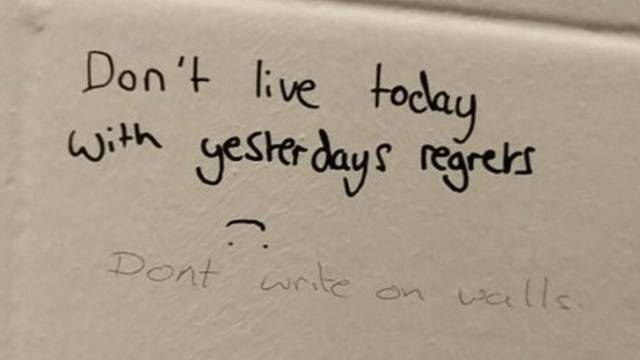 Don't live today
with yesterdays regrets
Dont write on walls.